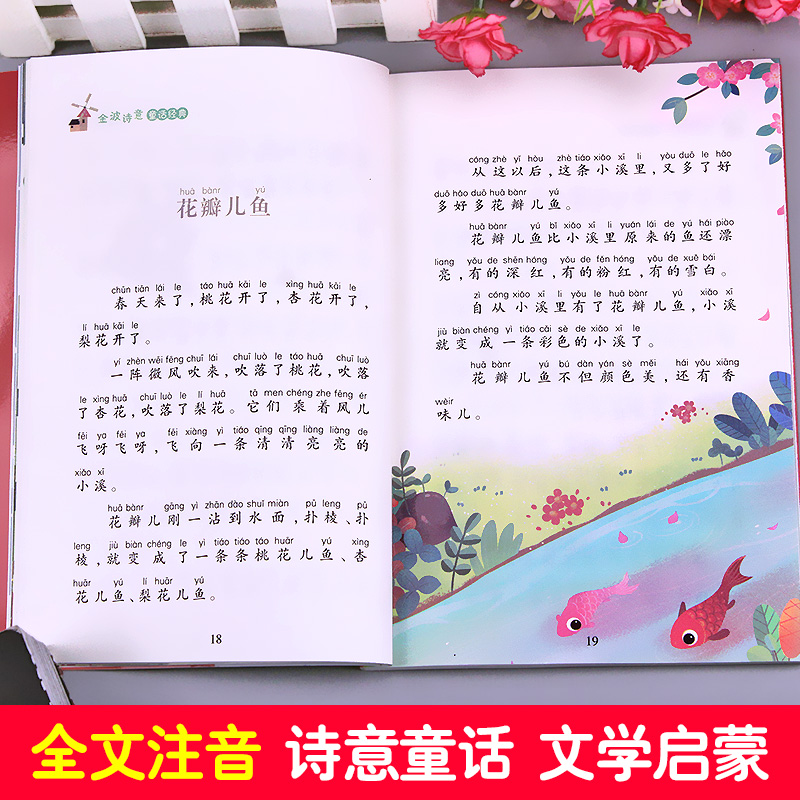 金波诗意 童话经典
huā bànr yú
花瓣儿鱼
chūn tiān lái le táo huā kāi le xìng huā kāi le
春天来了，桃花开了，杏花开了，
lí huā kāi le
梨花开了。
yí zhèn wēi fēng chuī lái chuī luò le táo huā chuī luò
一阵微风吹来，吹落了桃花，吹落
le xìng huā chuī luò le lí huā tā men chéng zhe fēng ér
了杏花，吹落了梨花。它们乘着风儿
fēi ya fēi ya fēi xiàng yì tiáo qīng qīng liàng liàng de
飞呀飞呀，飞向一条清清亮亮的
xiǎo xī
小溪。
huā bànr gāng yì zhān dào shuǐ miàn pū leng pū
花瓣儿刚一沾到水面，扑棱、扑
leng jiù biàn chéng le yì tiáo tiáo táo huār yú xìng
棱，就变成了一条条桃花儿鱼、杏
huār yú lí huār yú
花儿鱼、梨花儿鱼。
18
cóng zhè yǐ hòu zhè tiáo xiǎo xī li yòu duō le hǎo
从这以后，这条小溪里，又多了好
duō hǎo duō huā bànr yú
多好多花瓣儿鱼。
huā bànr yú bǐ xiǎo xī li yuán lái de yú hái piào
花瓣儿鱼比小溪里原来的鱼还漂
liang yǒu de shēn hóng yǒu de fěn hóng yǒu de xuě bái
亮，有的深红，有的粉红，有的雪白。
zì cóng xiǎo xī li yǒu le huā bànr yú xiǎo xī
自从小溪里有了花瓣儿鱼，小溪
jiù biàn chéng yì tiáo cǎi sè de xiǎo xī le
就变成一条彩色的小溪了。
huā bànr yú bú dàn yán sè měi hái yǒu xiāng
花瓣儿鱼不但颜色美，还有香
wèir
味儿。
19
全文注音 诗意童话 文学启蒙